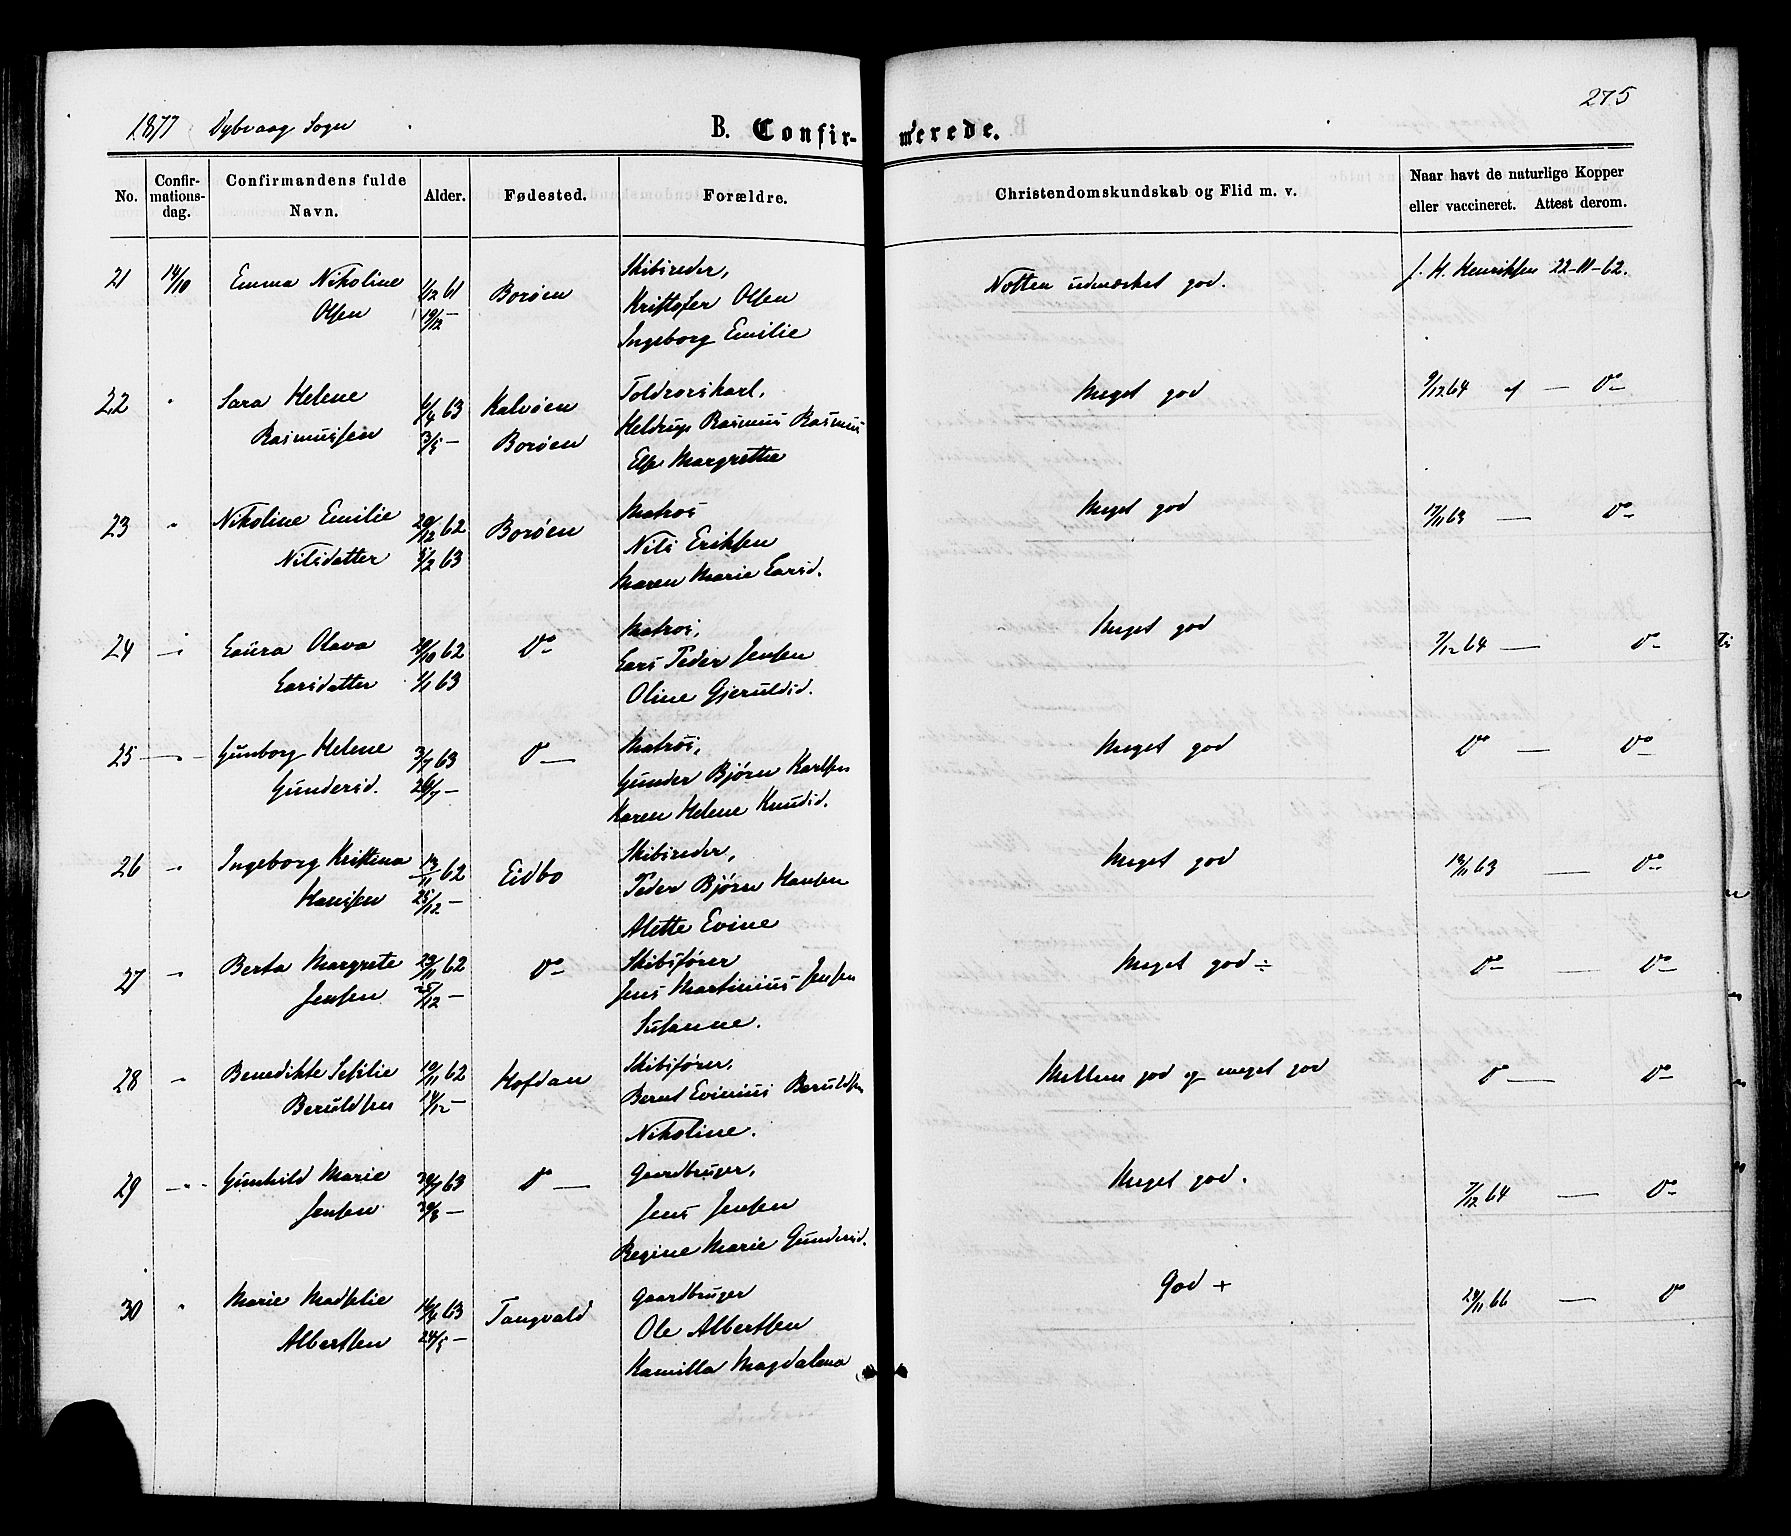 275
1877 Dybvaag Sogn
B. Confir- merede.
No. Confir-mations-dag. Confirmandens fulde Navn. Alder. Fødested. Forældre. Christendomskundskab og Flid m. v. Naar havt de naturlige Kopper eller vaccineret. Attest derom.
21 14/10 Emma Nikoline 61 Borøen Skibsreder, Notten udmærket god. J. H. Henriksen 22-11-62.
Olsen 19/12 — Kristofer Olsen
Ingeborg Emilie
22 " Sara Helene 6/4 63 Kalvøen Toldrorskarl, Meget god 9/12 64 af — Do
Rasmussen 3/5 — Borøen Heldrup Rasmus Rasmus
Else Margrethe
23 " Nikoline Emilie 20/12 62 Borøen Matros Meget god 17/11 63 — Do
Nilsdatter 8/2 63 Nils Eriksen
Maren Marie Larsd.
24 — " Laura Olava 20/10 62 Do Matros, Meget god 7/12 64 — Do
Larsdatter 1/1 63 Lars Peder Jensen
Oline Gjeruldsd.
25 — " — Gunborg Helene 3/7 63 Do — Matros, Meget god Do — Do
Gundersd. 26/7 — Gunder Bjørn Karlsen
Karen Helene Knudsd.
26 " Ingeborg Kristina 13/11 62 Eidbo Skibsreder, Meget god 19/11 63 — Do
Hansen 25/12 — Peder Bjørn Hansen
Alette Evine
27 " Berta Margrete 23/11 62 Do Skibsfører Meget god ÷ Do — Do
Jensen 25/12 — Jens Martinius Jensen
Susanne.
28 " Benedikte Sesilie 10/11 62 Hofdan Skibsfører, Mellem god og meget god Do — Do
Beruldsen 14/12 — Bernt Evinius Beruldsen
Nikoline.
29 — " " Gunhild Marie 30/7 63 Do — Gaardbruger, Meget god. 7/12 64 — Do
Jensen 30/8 — Jens Jensen
Regine Marie Gundersd.
30 " Marie Madselie 16/4 63 Tangvald Gaardbruger God + 29/11 66 — Do
Albertsen 24/5 — Ole Albertsen
Kamilla Magdalena